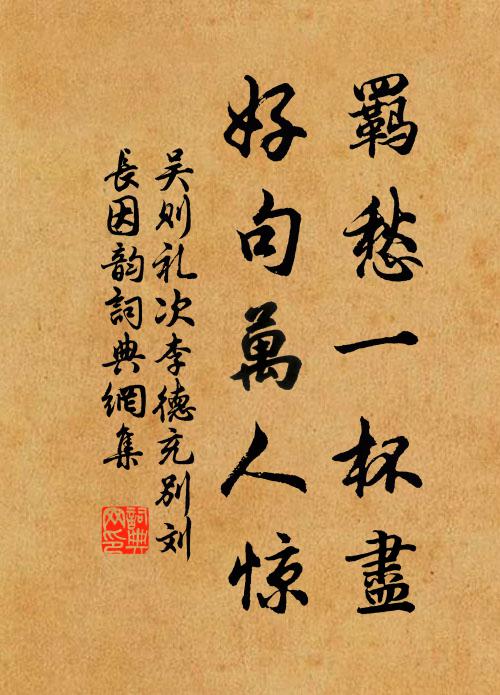 羈愁一杯盡
好句萬人惊
吴则礼次李德充别刘
長因韵詞典網集
詞典